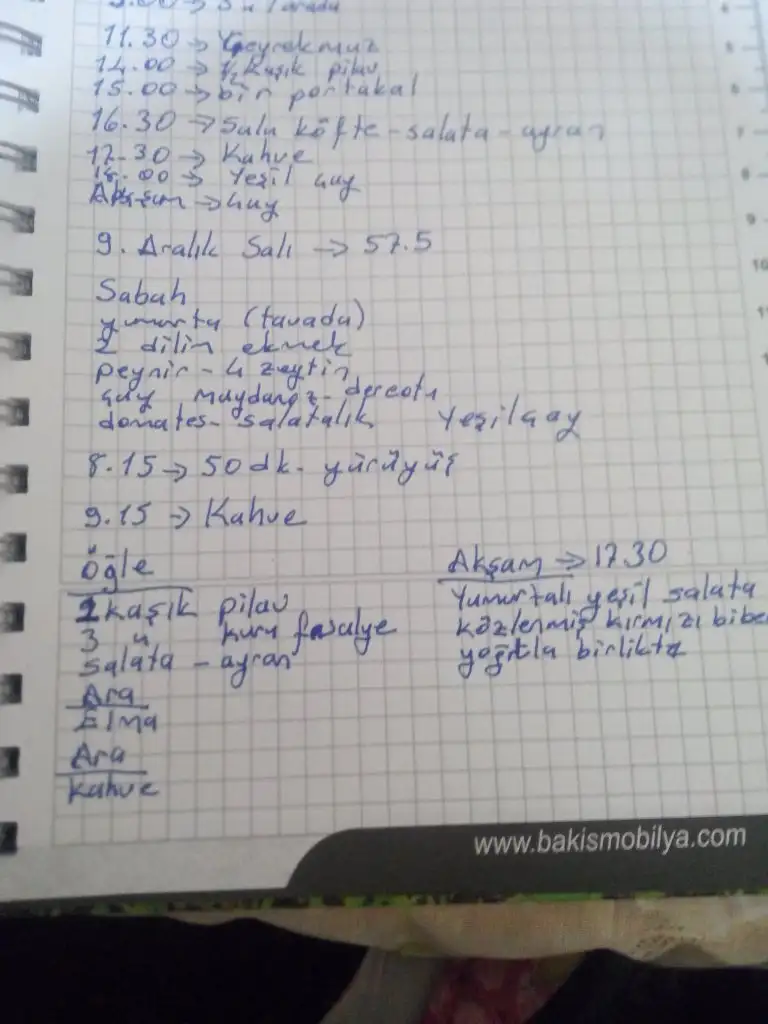 11.30 → Çeyrek muz
14.00 → 1/2 Kaşık pilav
15.00 → bir portakal
16.30 → Sulu köfte - salata - ayran
17.30 → Kahve
18.00 → Yeşil çay
Akşam → Çay
9. Aralık Salı → 57.5
Sabah
yumurta (tavada)
2 dilim ekmek
peynir - 4 zeytin
çay maydanoz - dereotu
domates - salatalık Yeşilçay
8.15 → 50 dk. yürüyüş
9.15 → Kahve
Öğle
2 kaşık pilav
3 " kuru fasulye
salata - ayran
Ara
Elma
Ara
Kahve
Akşam → 17.30
Yumurtalı yeşil salata
közlenmiş kırmızı biber
yoğurtla birlikte
www.bakismobilya.com